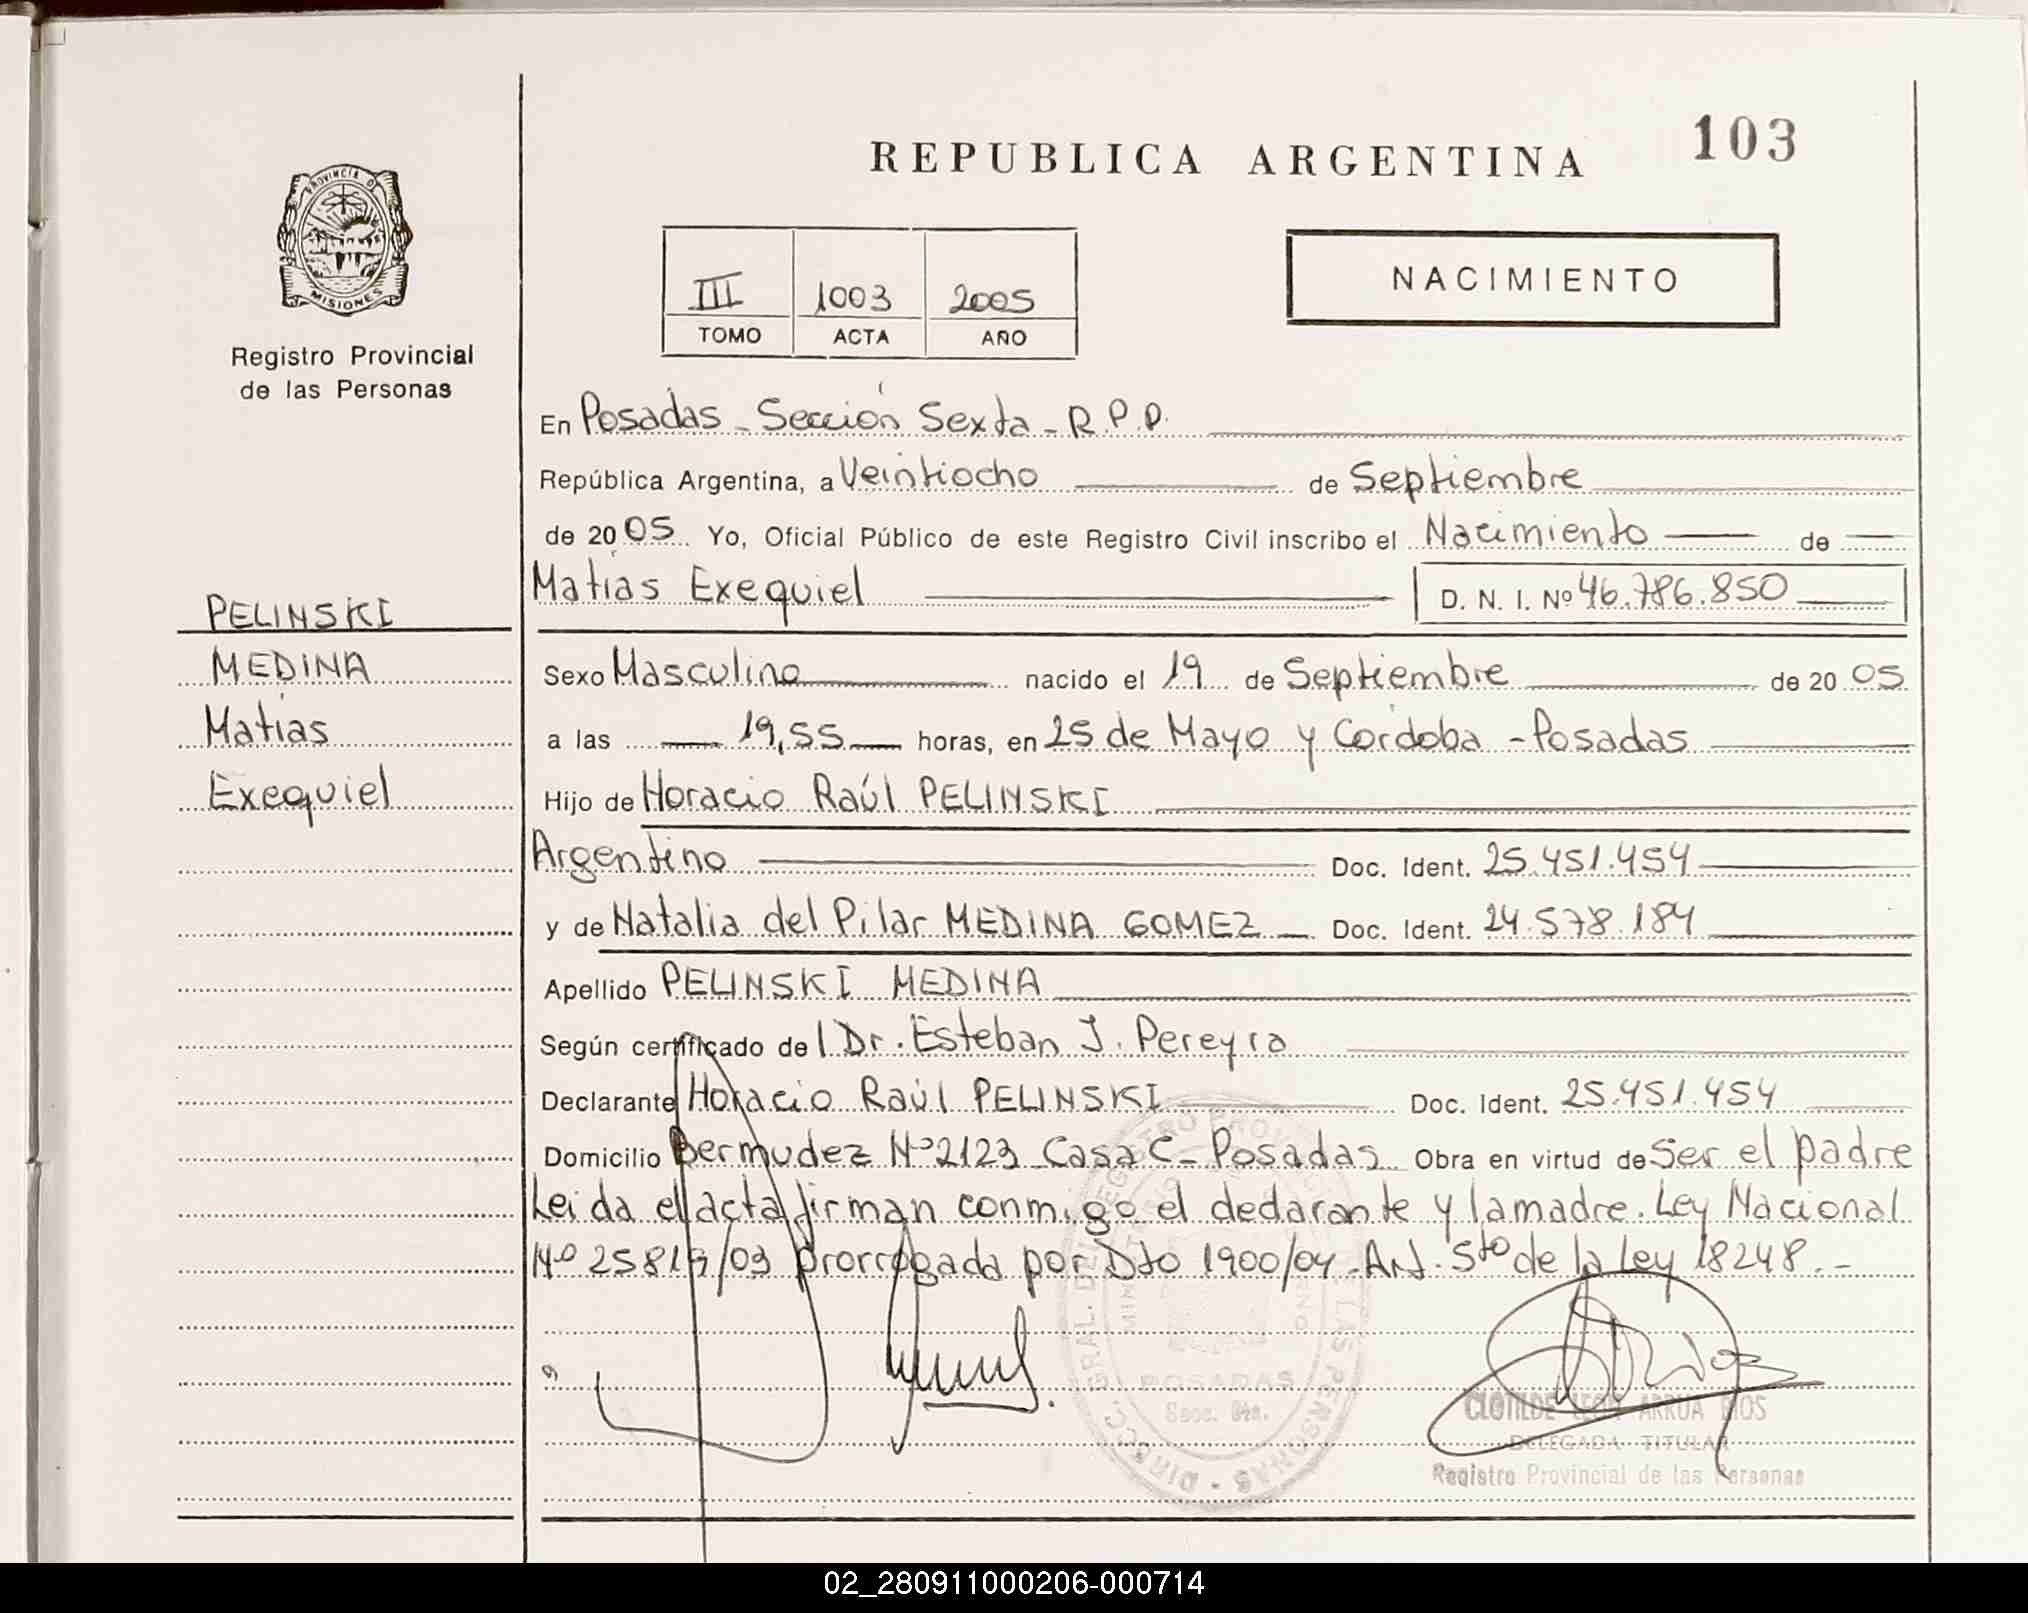 103
REPUBLICA ARGENTINA
PROVINCIA DE
MISIONES
Registro Provincial
de las Personas
NACIMIENTO
III 1003 2005
TOMO ACTA AÑO
En Posadas - Sección Sexta - R.P.P.
República Argentina, a Veintiocho de Septiembre
de 2005 Yo, Oficial Público de este Registro Civil inscribo el Nacimiento de
Matías Exequiel D. N. I. Nº 46.786.850
PELINSKI
MEDINA
Matías
Exequiel
Sexo Masculino nacido el 19 de Septiembre de 2005
a las 19,55 horas, en 25 de Mayo y Cordoba - Posadas
Hijo de Horacio Raúl PELINSKI
Argentino Doc. Ident. 25.451.454
y de Natalia del Pilar MEDINA GOMEZ Doc. Ident. 24.578.184
Apellido PELINSKI MEDINA
Según certificado del Dr. Esteban J. Pereyra
Declarante Horacio Raúl PELINSKI Doc. Ident. 25.451.454
Domicilio Bermudez Nº 2123 Casa C - Posadas Obra en virtud de ser el padre
Leida el acta firman conmigo el declarante y la madre. Ley Nacional
Nº 25819/03 prorrogada por Dto 1900/04 - Art. 5to de la Ley 18248. -
POSADAS
Secc. 6ta.
CLOTILDE LEON ARRUA RIOS
DELEGADA TITULAR
Registro Provincial de las Personas
02_280911000206-000714